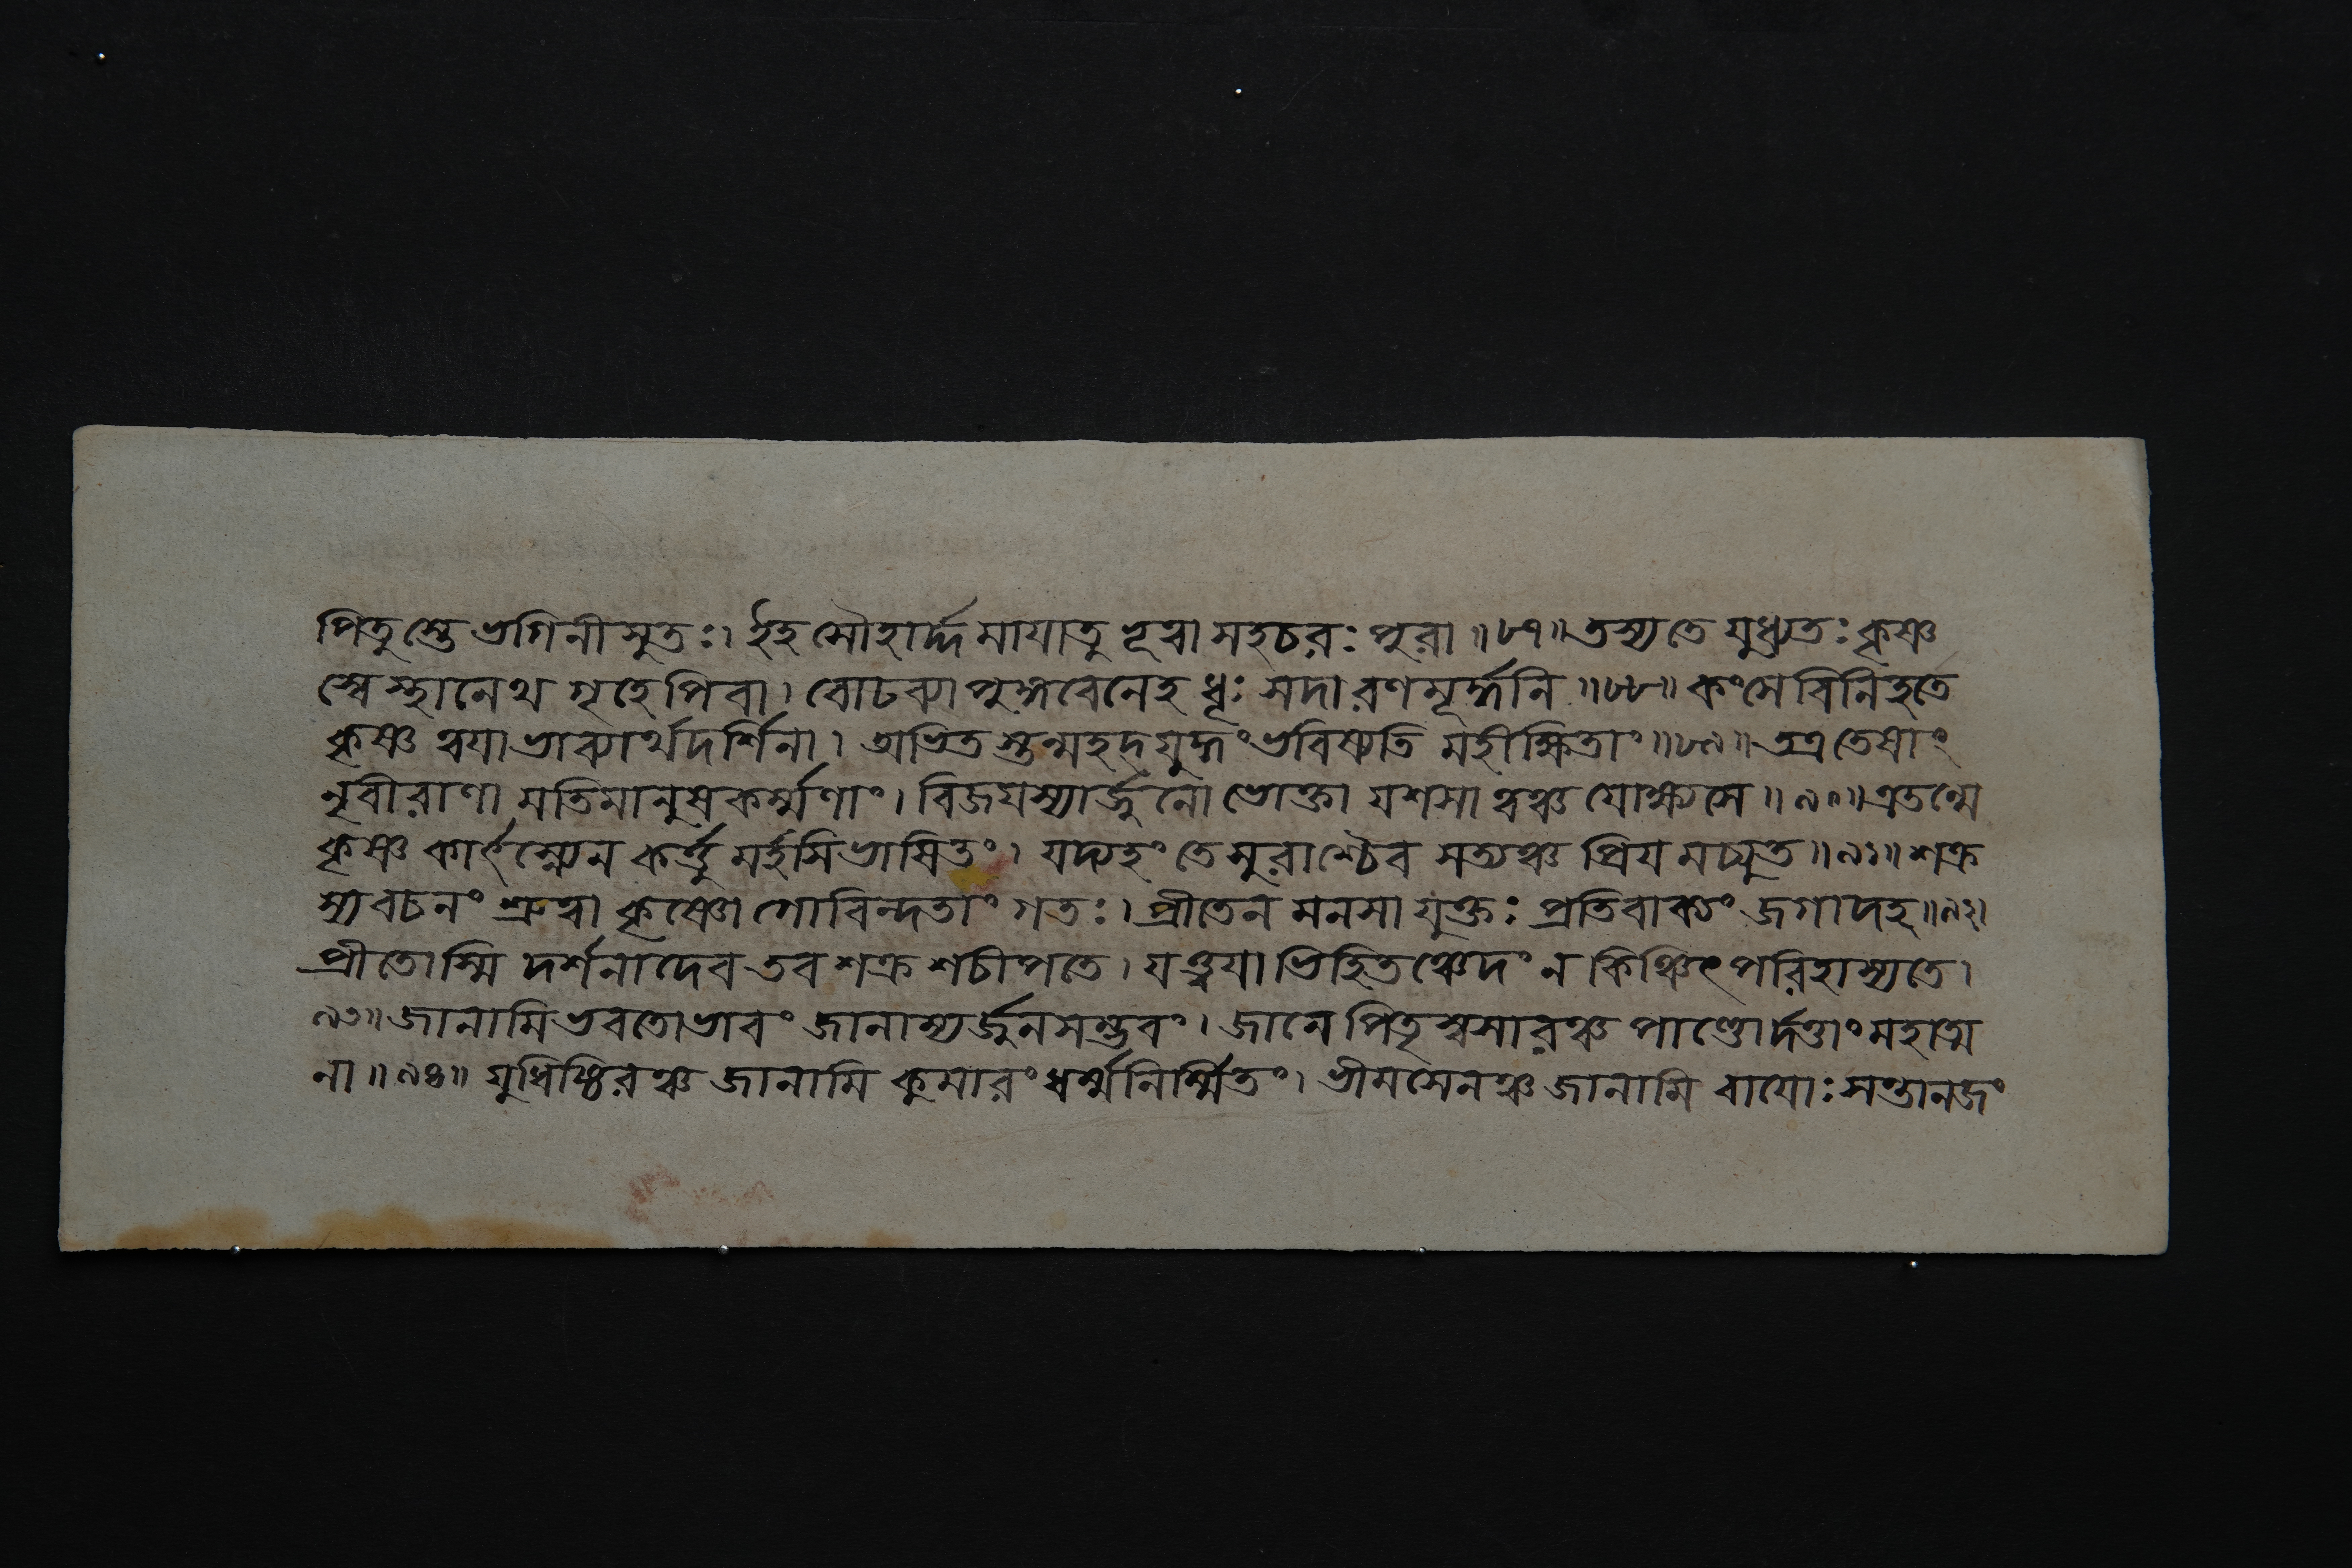 পিতুস্তে ভগিনীসুতঃ। ইহ সৌহার্দ্দমাযাতু হূত্বা সহচরঃ পুরা॥৮৭॥তস্যতে যুধ্যতঃ কৃষ্ণ
স্বেস্থানেথ গৃহেপিবা। বোঢব্যা পুঙ্গবেনেহ ধূঃ সদা রণমূর্দ্ধনি॥৮৮॥ কংসে বিনিহতে
কৃষ্ণ ত্বযা ভাব্যার্থদর্শিনা। অভিতস্তন্মহদযুদ্ধং ভবিষ্যতি মহীক্ষিতাং॥৮৯॥তত্র তেষাং
নৃবীরাণা মতিমানুষকর্ম্মণাং। বিজযস্যার্জ্জুনো ভোক্তা যশসা ত্বঞ্চ যোক্ষ্যসে॥৯০॥এতন্মে
কৃষ্ণ কার্ৎস্ন্যেন কর্ত্তু মর্হসিভাষিতং। যদ্যহং তে সুরাশ্চৈব সত্যঞ্চ প্রিয মচ্যুত॥৯১॥শক্র
স্যবচনং শ্রুত্বা কৃষ্ণো গোবিন্দতাং গতঃ। প্রীতেন মনসা যুক্তঃ প্রতিবাক্যং জগাদহ॥৯২॥
প্রীতোস্মি দর্শনাদেব তব শক্র শচীপতে। যত্ত্বযাভিহিতঞ্চেদং ন কিঞ্চিৎপরিহাস্যতে।
৯৩॥জানামিভবতোভাবং জানাম্যর্জুনসম্ভবং। জানে পিতৃস্বসারঞ্চ পাণ্ডোর্দত্তাং মহাত্ম
না॥৯৪॥ যুধিষ্ঠিরঞ্চ জানামি কুমারং ধর্ম্মনির্ম্মিতং। ভীমসেনঞ্চ জানামি বাযোঃ সন্তানজং